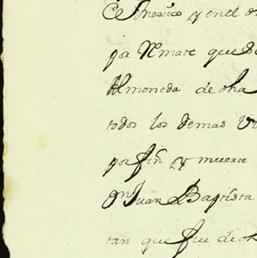 y en el
por Rmate que d
Almoneda de dha
todos los demas
por fin y muerte
Dn Juan Baptista
tan que fue de